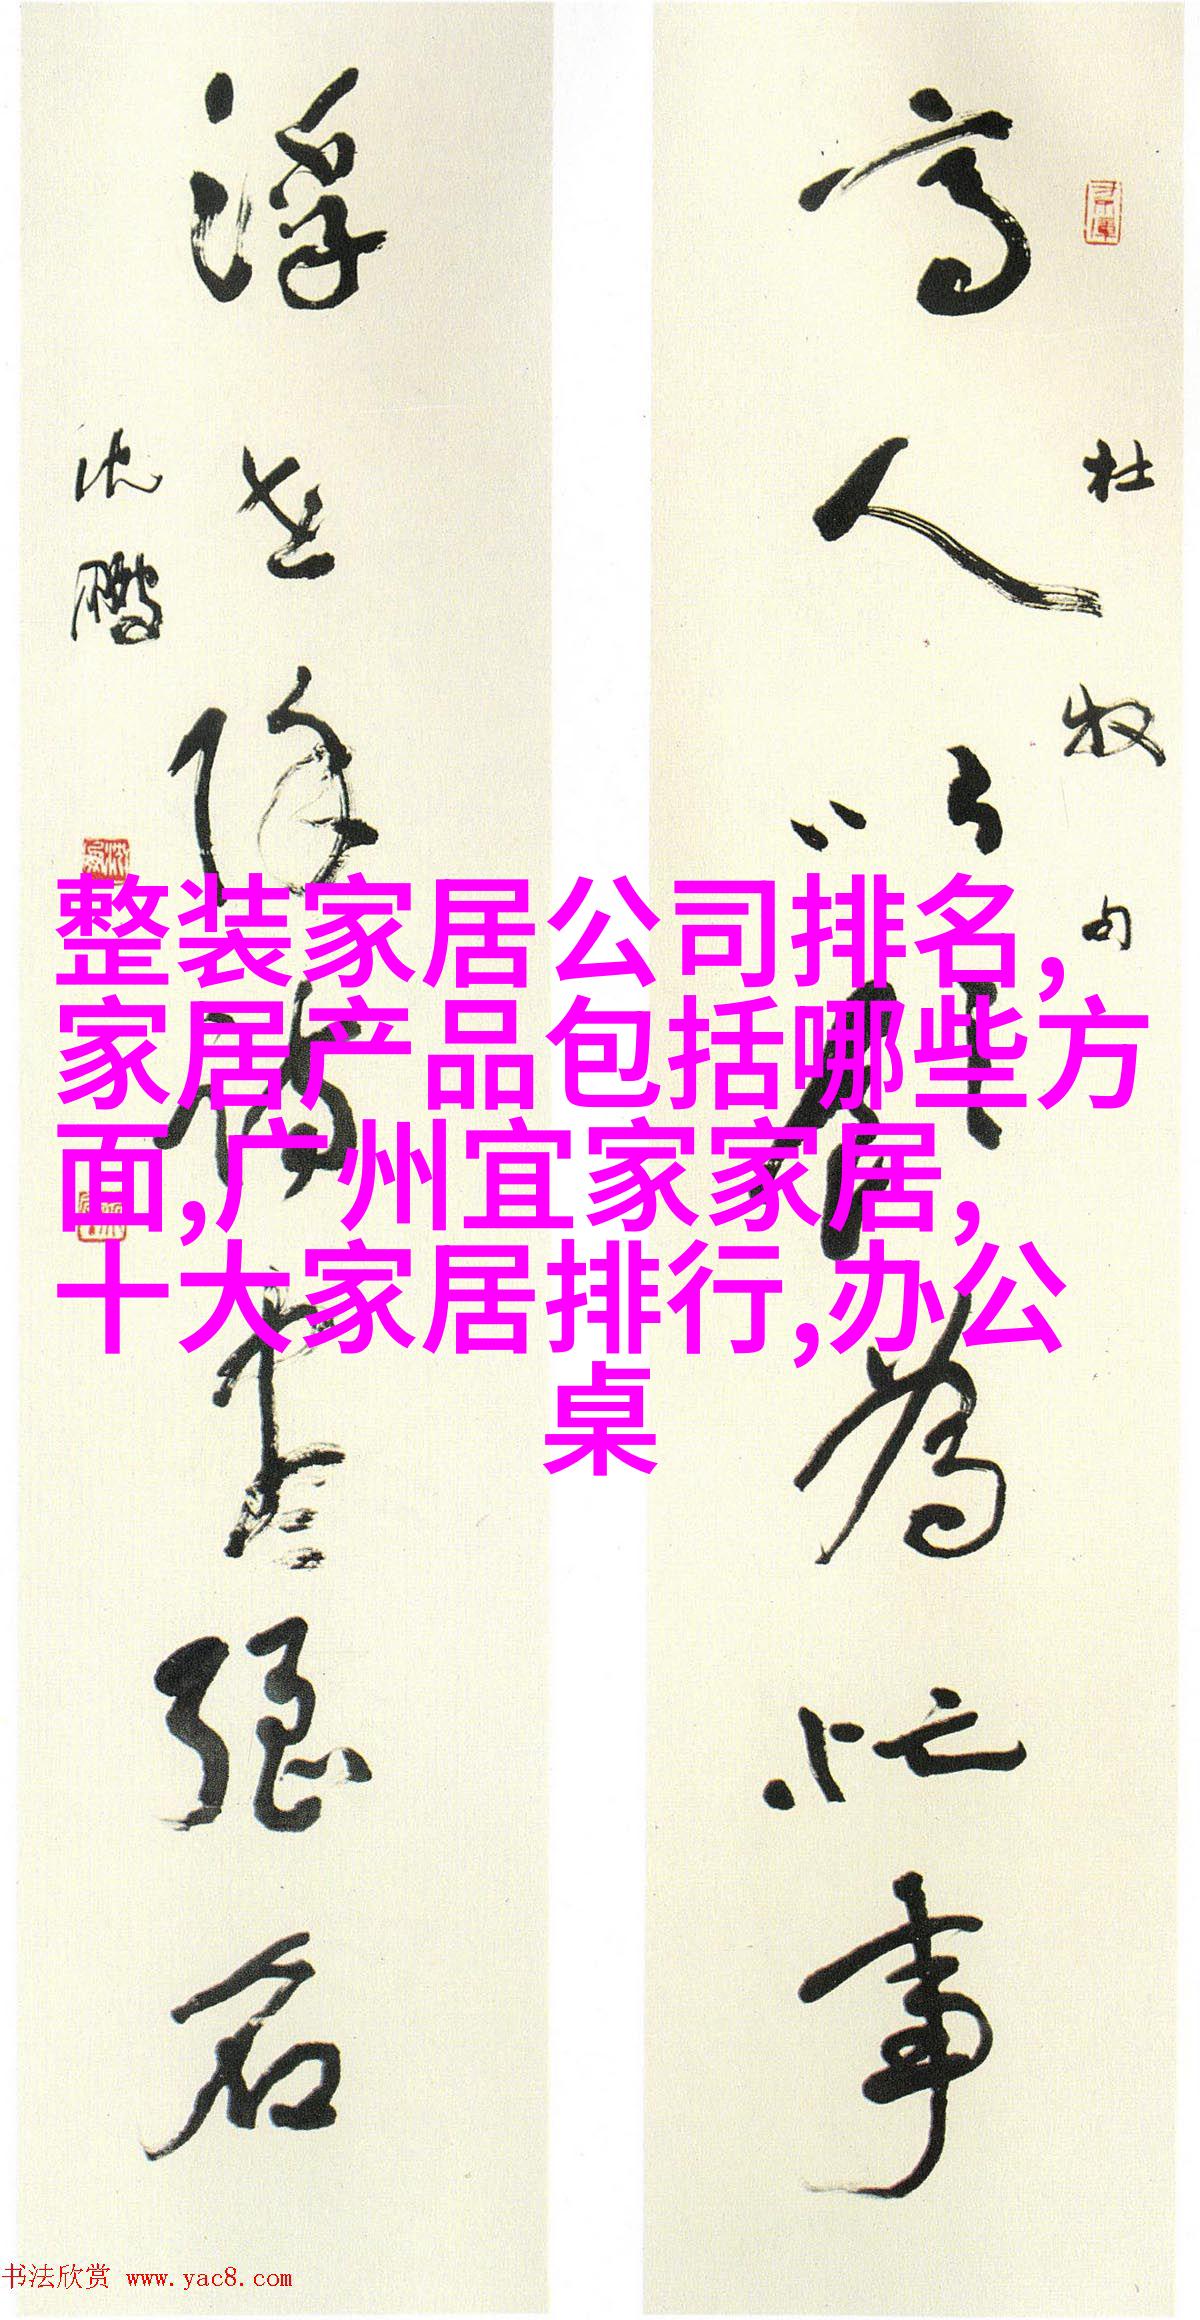 杜牧句
高人以飲為忙事
浮世除詩盡強名
沈鵬
整装家居公司排名,
家居产品包括哪些方
面,广州宜家家居,
十大家居排行,办公
桌
书法欣赏 www.yac8.com